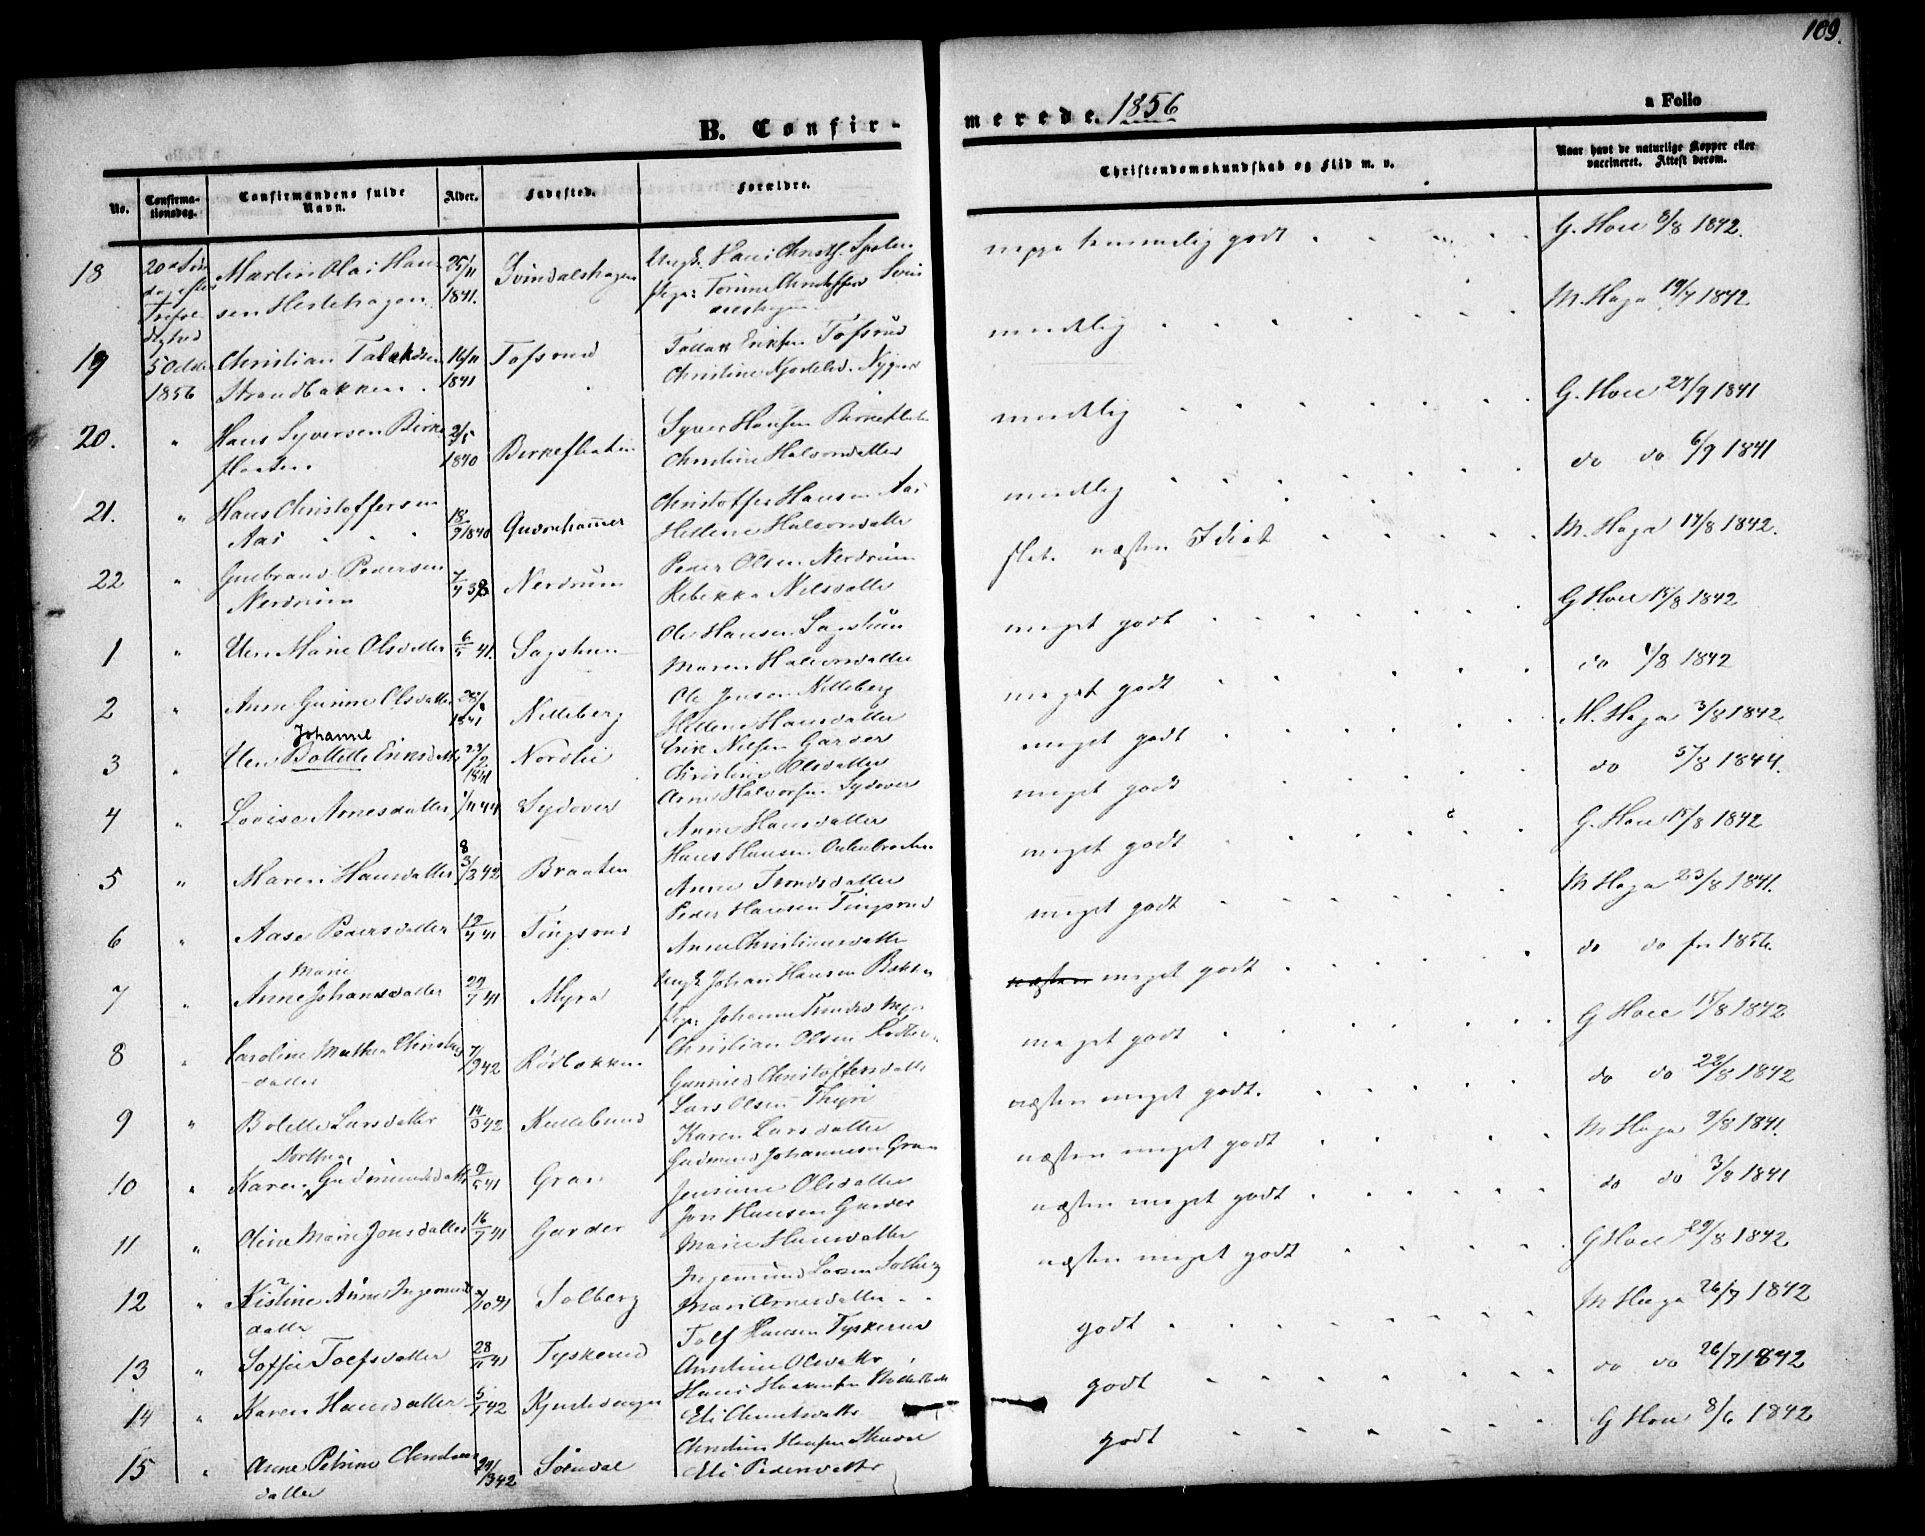 109.
B. Confir-
merede. 1856
a Folio
No.
Confirma-
tionsdag.
Confirmandens fulde
Navn.
Alder.
Fødested.
Forældre.
Christendomskundskab og Flid m. v.
Naar havt de naturlige Kopper eller
vaccineret. Attest derom.
18 Martin Olai Han 25/11 Svindalshagen Ungk. Hans Christf. temmelig godt G. Hoel 8/8 1842.
sen Hestehagen 1841. Pige:
19 5 October Christian Talakdsen 16/11 Tofsrud Tallak Eriksen Tofsrud mindlig M. Haga 19/7 1842
1856 Strandbakken 1841 Christine
20. " Hans Syversen Birke 2/5 Birkeflaten Syver Hansen Birkeflaten mindlig G. Hoel 27/9 1841
flaten 1840 Christine Halvorsdatter
21. " Hans Christoffersen 18/9 1840 Gudenhammer Christoffer Hansen Aas mindlig do do 6/9 1841
Aas Hellene Halvorsdatter
22 " Gudbrand Pedersen 7/4 38 Nerdrum Peder Olsen Nerdrum slet. næsten Idiot M. Haga 17/8 1842.
Nerdrum Rebekka Nilsdatter
1 " Elen Marie Olsdatter 6/5 41. Sagstuen Ole Hansen Sagstuen meget godt G Hoel 15/8 1842
Maren Halvorsdatter
2 " Anne Gurine Olsdatter 28/ 1841 Nilleberg Ole Jensen Nilleberg meget godt do /8 1842
Hellene Hansdatter
Johanne
3 " Elen Bolette Eriksdatter 23/2 1841 Nordlie Erik Nilsen Garder meget godt M. Haga 3/8 1842
Christine Olsdatter
4 " Lovise Arnesdatter 1/11 44 Sydover Arne Halvorsen Sydover meget godt do 5/8 1844.
Anne Hansdatter
5 " Maren Hansdatter 8 3/3 42 Braaten Hans Hansen meget godt G. Hoel 15/8 1842
Anne Trondsdatter
6 " Aase Pedersdatter 19/4 41 Tingsrud Peder Hansen Tingsrud meget godt M Haga 23/8 1841.
Anne Christiansdatter
Marie
7 " Anne Johansdatter 29/7 41 Myra Ungk Johan Hansen Bakken næsten meget godt do do 1856.
Pige Johanne Trondsd. Myra
8 " Caroline Mathea Christians 7/9 42 Rødbakken Christian Olsen meget godt G Hoel 15/8 1842
-datter Gunnild Christoffersdatter
9 " Bolette Larsdatter 14/5 42 Kullebund Lars Olsen Thyri næsten meget godt. do do 22/8 1842
Karen Larsdatter
Dorthea
10 " Karen Gudmundsdatter 9/5 41 Gran Gudmund Johannesen Gran næsten meget godt M Haga 9/8 1841.
Jensine Olsdatter
11 " Oline Marie Jonsdatter 16/7 41 Garder Jon Hansen Garder næsten meget godt do do 3/8 1841
Marie Hansdatter
12 " Kristine Anne Ingemunds /10 41 Solberg Ingemund Larsen Solberg næsten meget godt G Hoel 29/8 1842
datter Mari Arnesdatter
13 " Soffie Tolfsdatter 28/11 41 Tyskerud Tolf Hansen Tyskerud godt M Haga 26/7 1842
Anestine Olsdatter
14 " Karen Hansdatter 5/1 42 Hans godt do do 26/7 1842
Eli
15 " Anne Petrine Christians 29/3 42 Svindal Christian Hansen godt G Hoel 8/6 1842
datter Eli Pedersdatter